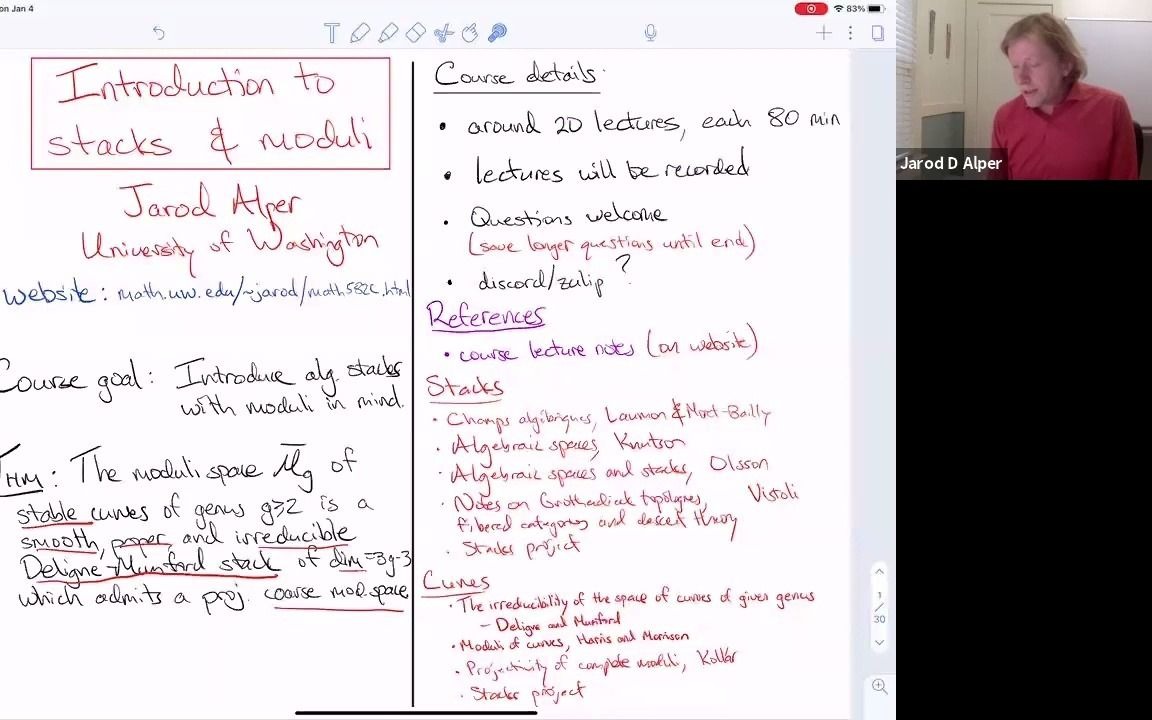 on Jan 4
83%
Introduction to
stacks & moduli
Jarod Alper
University of Washington
website: math.uw.edu/~jarod/math582C.html
Course goal: Introduce alg. stacks
with moduli in mind.
THM: The moduli space M̅g of
stable curves of genus g≥2 is a
smooth, proper and irreducible
Deligne-Mumford stack of dim=3g-3
which admits a proj. coarse mod. space
Course details:
• around 20 lectures, each 80 min
• lectures will be recorded
• Questions welcome
(save longer questions until end)
• discord/zulip ?
References
• course lecture notes (on website)
Stacks
• Champs algébriques, Laumon & Moret-Bailly
• Algebraic spaces, Knutson
• Algebraic spaces and stacks, Olsson
• Notes on Grothendieck topologies, Vistoli
fibered categories and descent theory
• Stacks project
Curves
• The irreducibility of the space of curves of given genus
- Deligne and Mumford
• Moduli of curves, Harris and Morrison
• Projectivity of complete moduli, Kollár
• Stacks project
1
/
30
Jarod D Alper